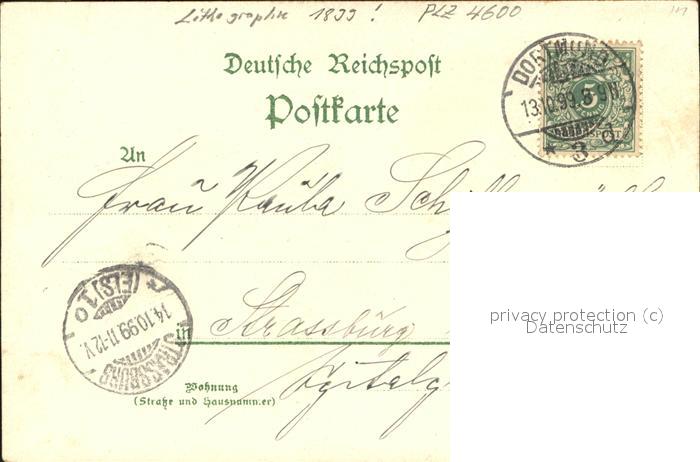 Lithographie 1899! PLZ 4600
Deutsche Reichspost
Postkarte
DORTMUND
13.10.99.8-9N.
* 3 d
5
REICHSPOST
An
Frau Paula
STRASSBURG (ELS) 1
14.10.99.11-12V.
in Strassburg
Wohnung
(Straße und Hausnummer)
privacy protection (c)
Datenschutz